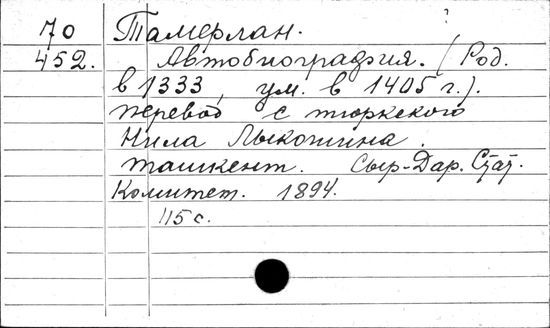 70 Тамерлан.
452. Автобиография. (Род.
в 1333, ум. в 1405 г.).
перевод с тюркского
Нила Лыкошина.
Ташкент. Сыр-Дар. Стат.
Комитет. 1894.
115 с.